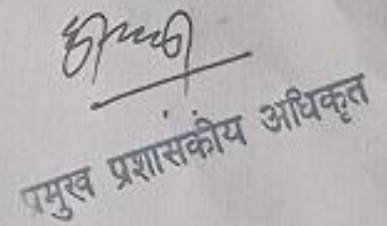 प्रमुख प्रशासंकीय अधिकृत